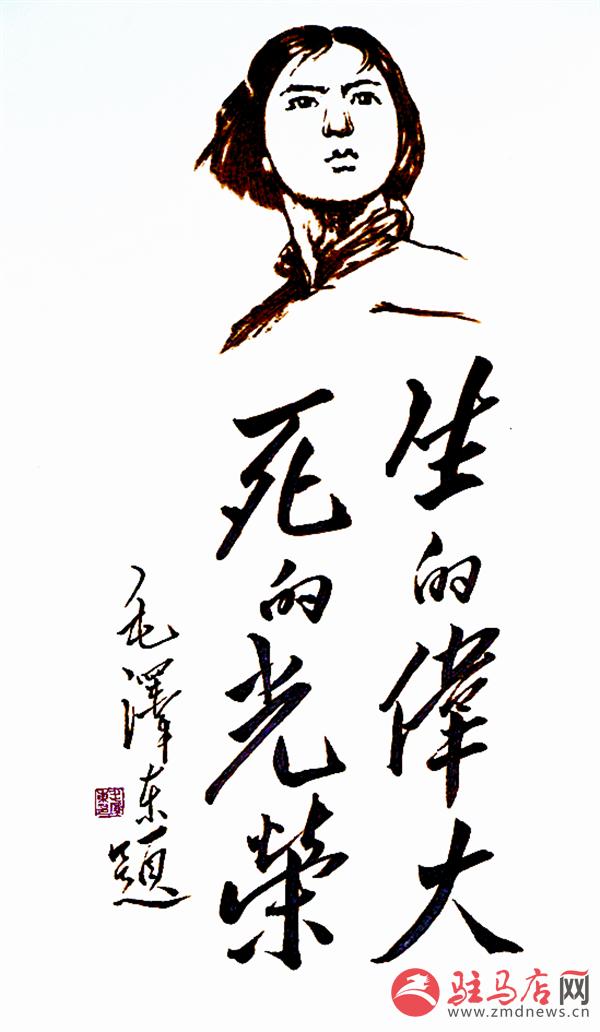 生的偉大
死的光榮
毛澤東題
驻马店网
www.zmdnews.cn